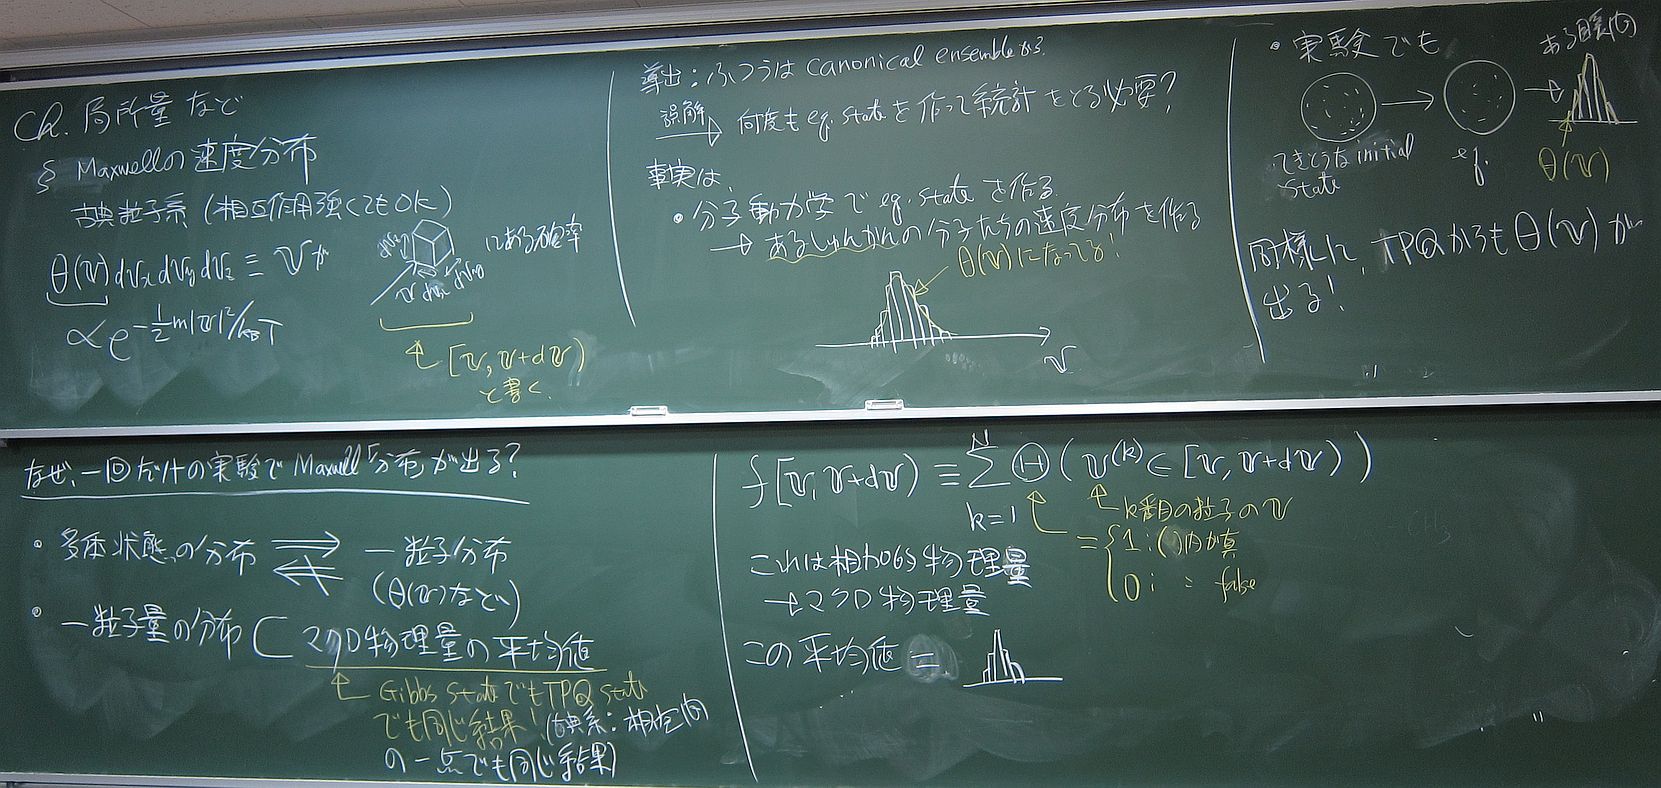 Ch. 局所量など
§ Maxwellの速度分布
古典粒子系 (相互作用強くてもOK)
θ(v)dvxdvydvz ≡ vが
にある確率
∝ e^{-½m|v|²/kBT}
[v, v+dv)
と書く.
導出 : ふつうは canonical ensembleから
誤解
何度も eq. stateを作って統計をとる必要?
事実は、
• 分子動力学で eq. stateを作る
→ あるしゅんかんの分子たちの速度分布を作る
θ(v)になってる!
v
• 実験でも
ある瞬間
てきとうな initial
state
eq.
θ(v)
同様に, TPQからもθ(v)が
出る!
なぜ、一回だけの実験でMaxwell分布が出る?
• 多体状態の分布 ⇒ 一粒子分布
(θ(v)など)
• 一粒子量の分布 ⊂ マクロ物理量の平均値
Gibbs stateでもTPQ state
でも同じ結果! (古典系 : 相空間
の一点でも同じ結果)
f[v, v+dv) ≡ Σ_{k=1}^{N} Θ(v^{(k)} ∈ [v, v+dv))
k番目の粒子のv
= { 1 : ( )内が真
0 : 〃 false
これは相加的物理量
→マクロ物理量
この平均値 =